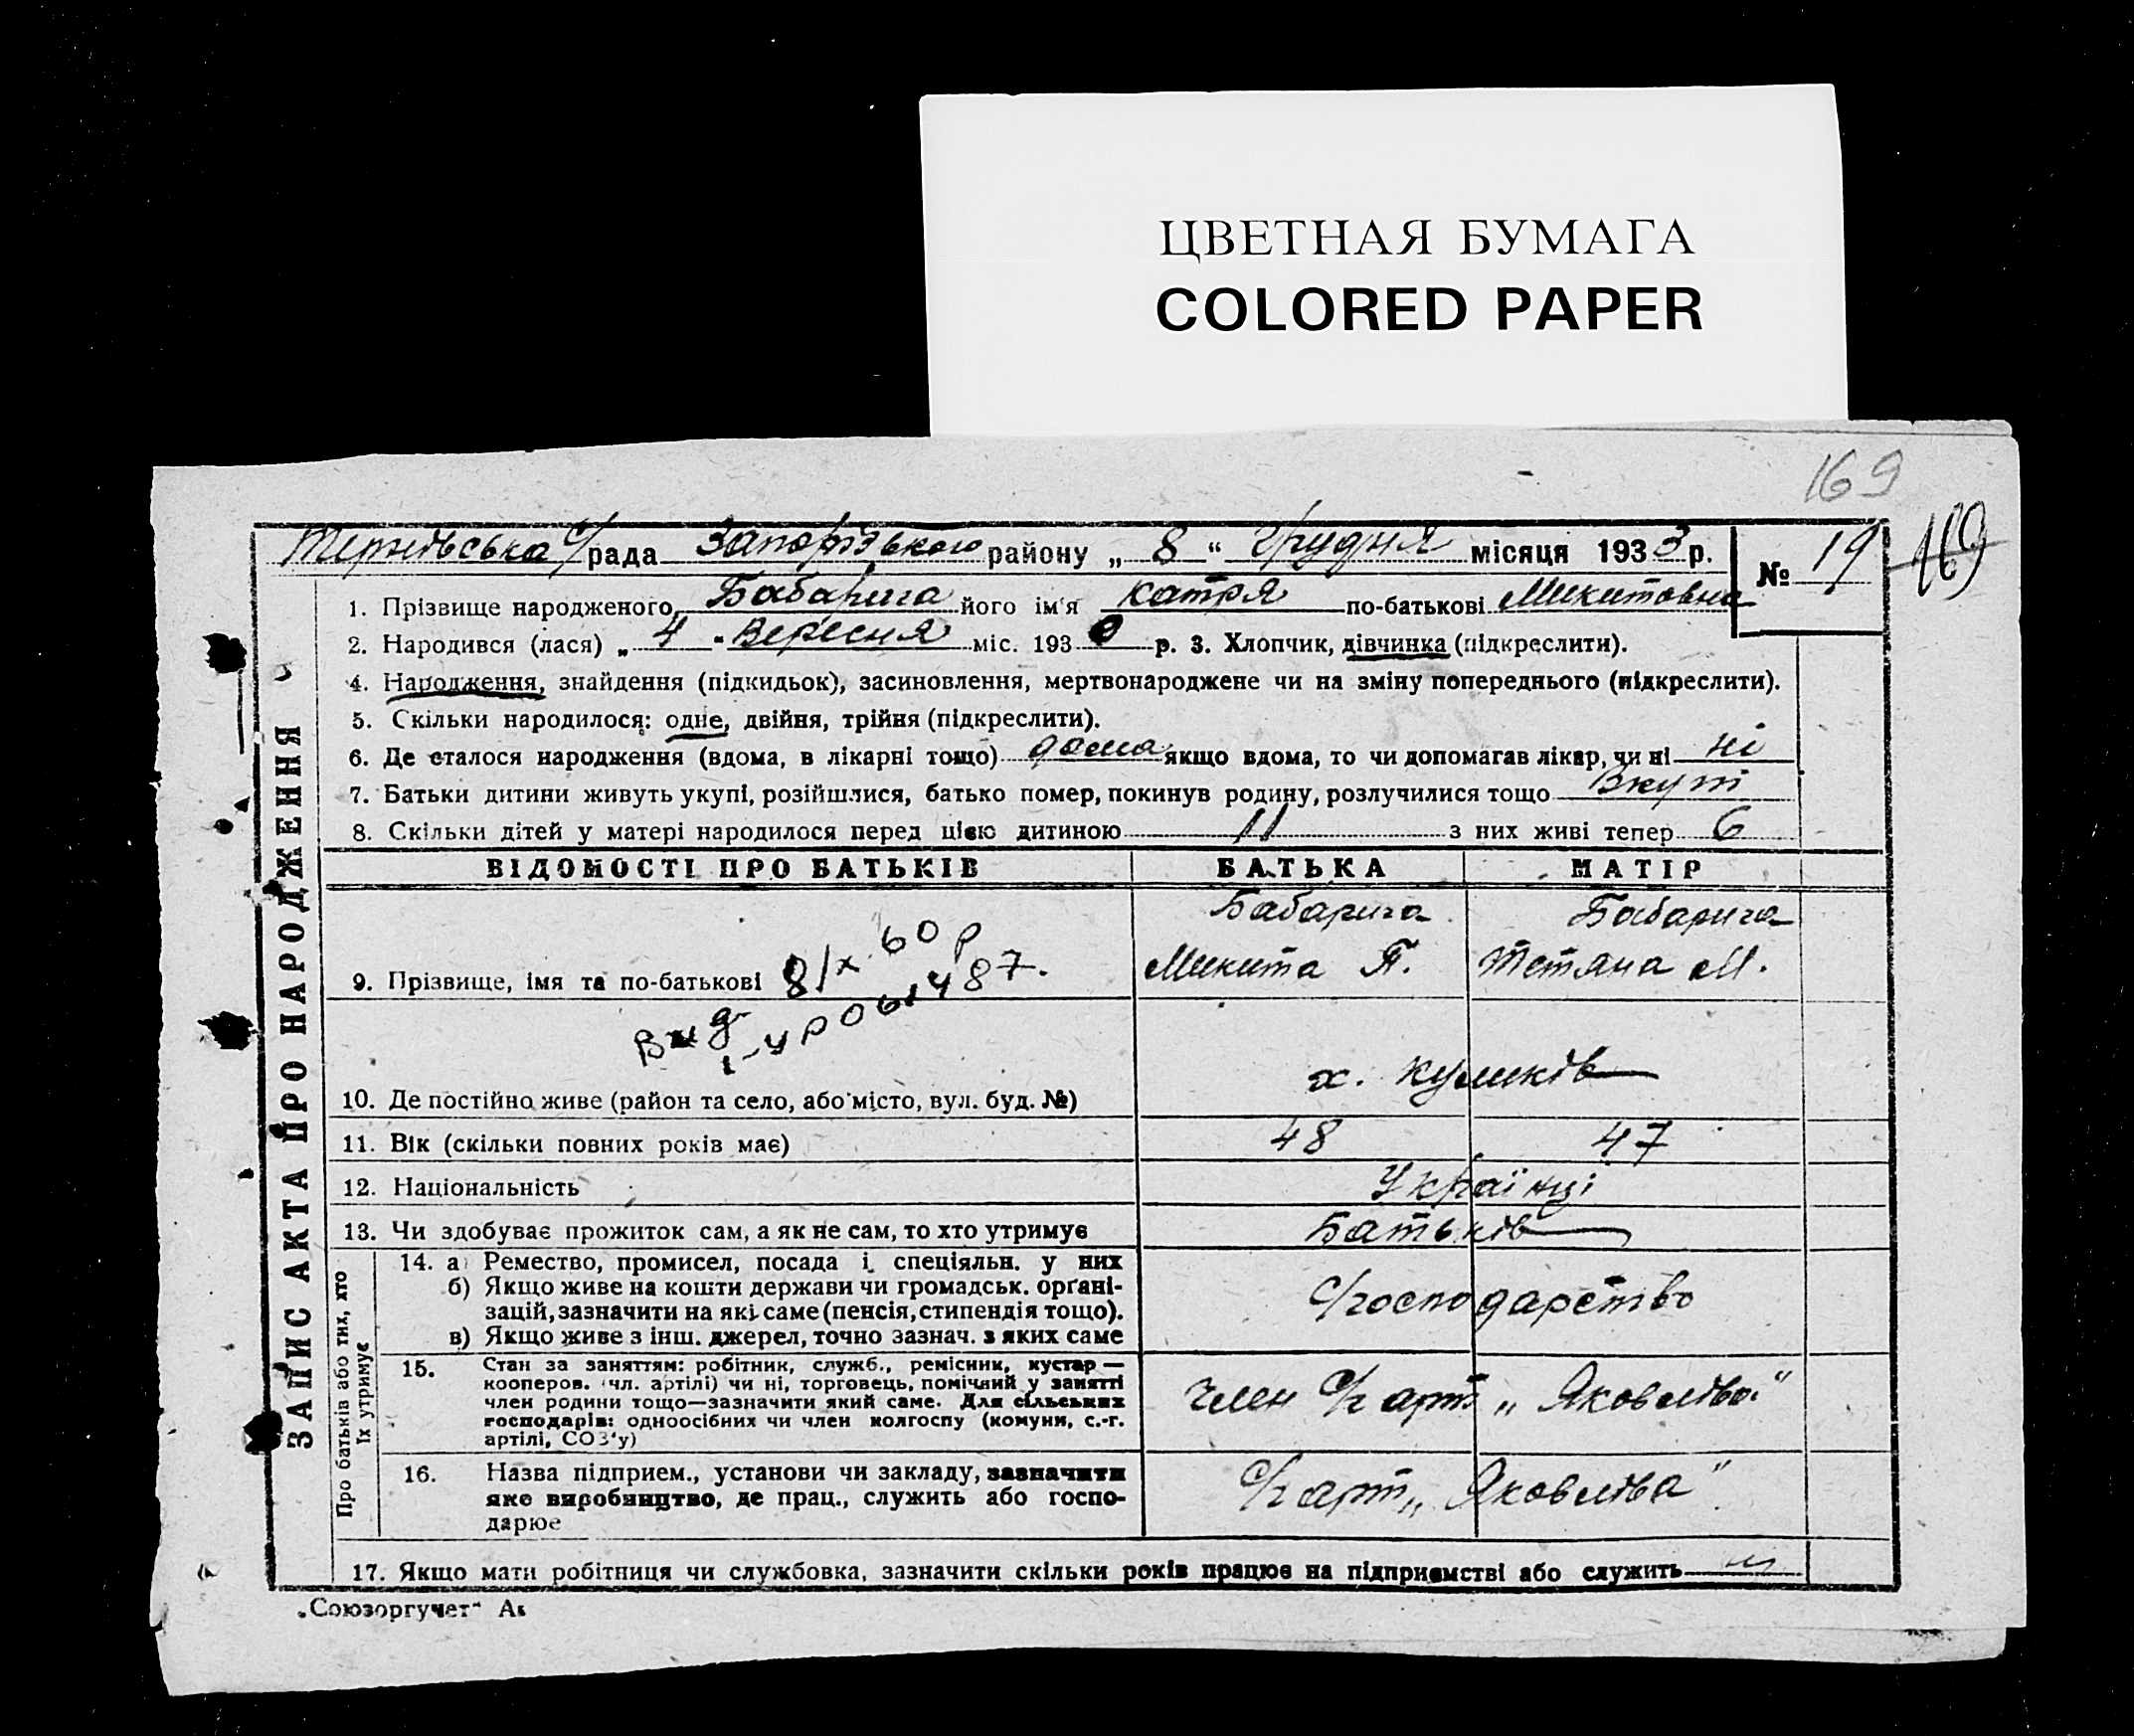 ЦВЕТНАЯ БУМАГА
COLORED PAPER
169
Тернівська с/рада Запорізького району „ 8 “ Грудня місяця 1933 р. № 19 169
1. Прізвище народженого Бабарига його ім'я Катря по-батькові Микитовна
2. Народився (лася) „ 4 " Вересня міс. 1930 р. 3. Хлопчик, дівчинка (підкреслити).
4. Народження, знайдення (підкидьок), засиновлення, мертвонароджене чи на зміну попереднього (підкреслити).
5. Скільки народилося: одне, двійня, трійня (підкреслити).
6. Де сталося народження (вдома, в лікарні тощо) дома якщо вдома, то чи допомагав лікар, чи ні ні
7. Батьки дитини живуть укупі, розійшлися, батько помер, покинув родину, розлучилися тощо Вкупі
8. Скільки дітей у матері народилося перед цією дитиною 11 з них живі тепер 6
ЗАПИС АКТА ПРО НАРОДЖЕННЯ
ВІДОМОСТІ ПРО БАТЬКІВ БАТЬКА МАТІР
Бабарига Бабарига
9. Прізвище, імя та по-батькові Микита П. Тетяна М.
8/X 60 р
10. Де постійно живе (район та село, або місто, вул. буд. №) х. Куликів
11. Вік (скільки повних років має) 48 47
12. Національність Українці
13. Чи здобуває прожиток сам, а як не сам, то хто утримує Батьків
Про батьків або тих, хто
їх утримує
14. а) Ремество, промисел, посада і спеціяльн. у них
б) Якщо живе на кошти держави чи громадськ. орґані-
зацій, зазначити на які саме (пенсія, стипендія тощо).
в) Якщо живе з інш. джерел, точно зазнач. з яких саме
с/господарство
15. Стан за заняттям: робітник, служб., ремісник, кустар —
кооперов. (чл. артілі) чи ні, торговець, помічний у занятті
член родини тощо—зазначити який саме. Для сільських
господарів: одноосібних чи член колгоспу (комуни, с.-г.
артілі, СОЗ'у)
член с/г арт „ Яковліва"
16. Назва підприєм., установи чи закладу, зазначити
яке виробництво, де прац., служить або госпо-
дарює
с/г арт „ Яковліва"
17. Якщо мати робітниця чи службовка, зазначити скільки років працює на підприємстві або служить
„Союзоргучет"